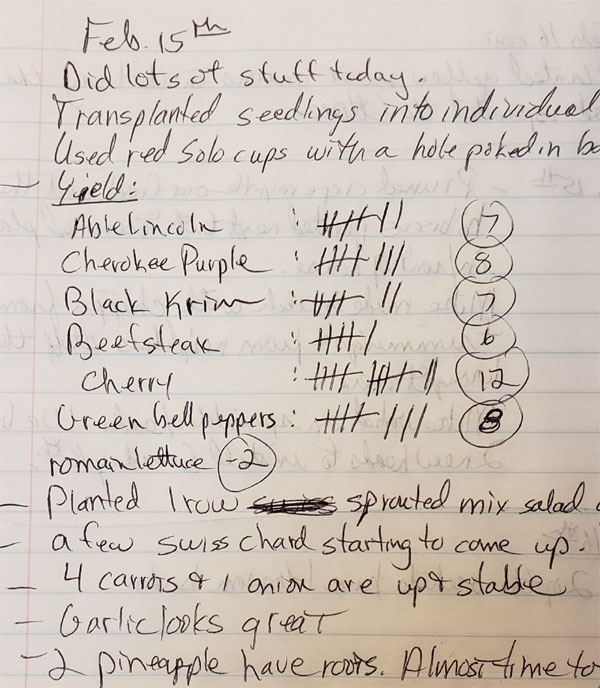 Feb. 15th
Did lots of stuff today.
Transplanted seedlings into individual
Used red Solo cups with a hole poked in
Yield:
Able Lincoln : 7
Cherokee Purple : 8
Black Krim : 7
Beefsteak : 6
Cherry : 12
Green bell peppers : 8
romain lettuce -2
- Planted 1 row sprouted mix salad
- a few swiss chard starting to come up.
- 4 carrots & 1 onion are up & stable
- Garlic looks great
- 2 pineapple have roots. Almost time to